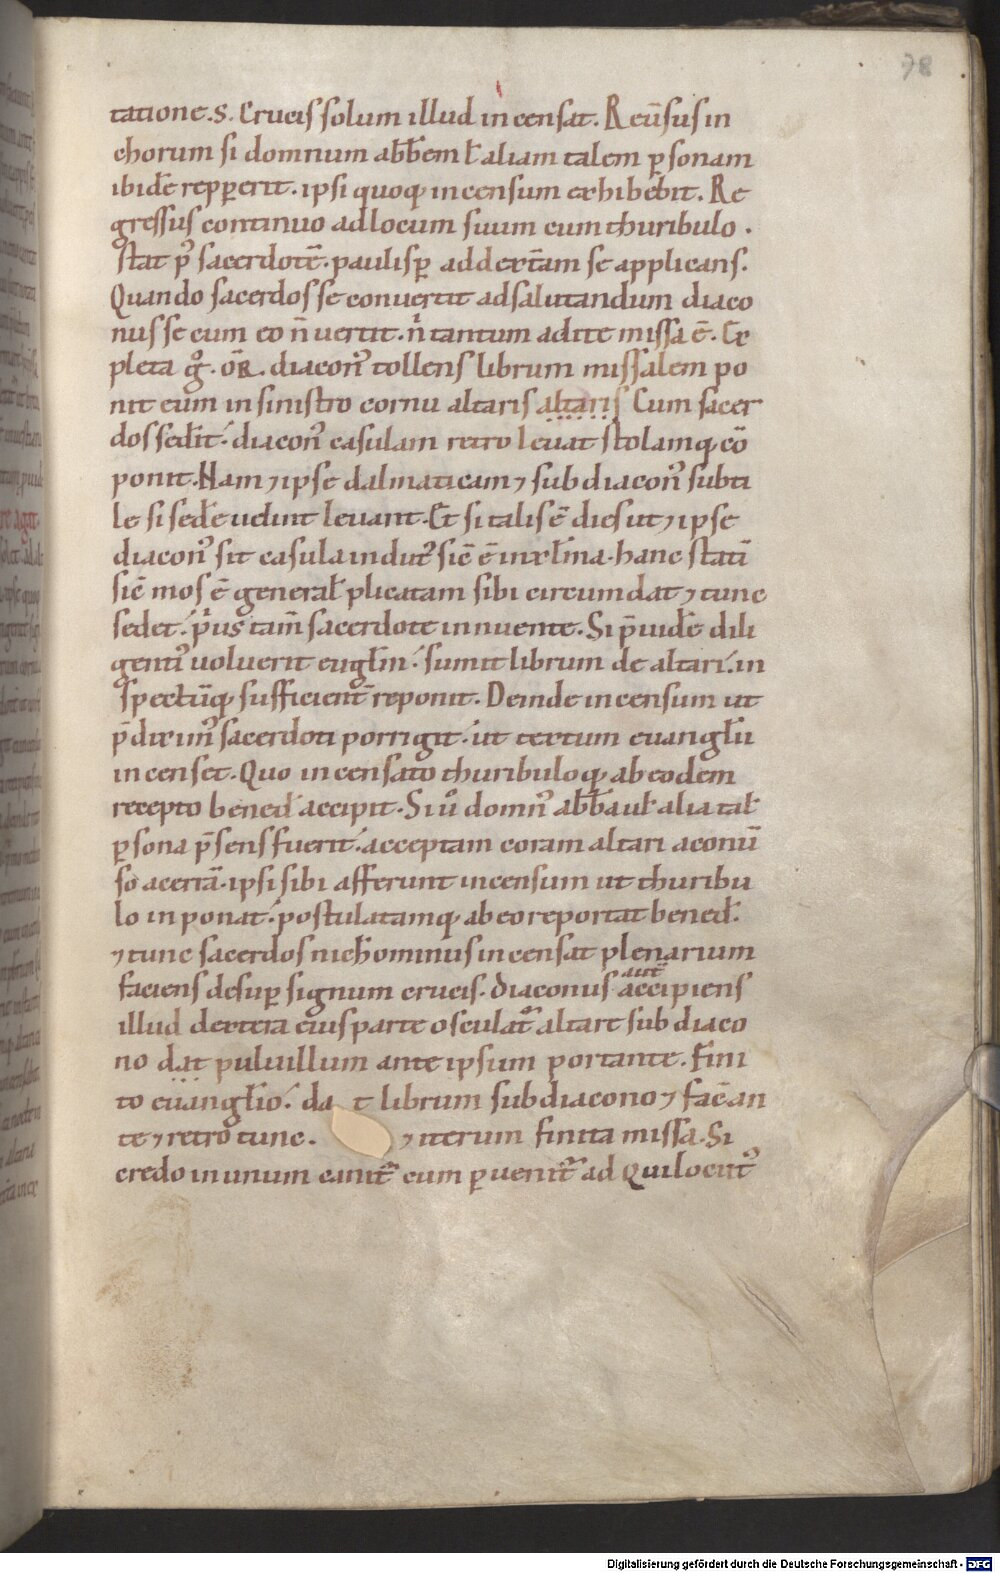 78
tatione.s. Crucis solum illud incensat. Reu̅sus in
chorum si domnum abb̅em ł aliam talem p̱sonam
ibide̅ repp̱erit. ipsi quoq; incensum exhibebit. Re
gressus continuo ad locum suum cum thuribulo.
stat p᷒ sacerdote̅. paulisp̱ ad dext̅am se applicans.
Quando sacerdos se conuertit ad salutandum diaco
nus se cum eo n̅ uertit. n̍ tantum ad ite missa e̅. Ex
pleta g̊. or̅. diacon᷒ tollens librum missalem po
nit eum in sinistro cornu altaris altaris Cum sacer
dos sed̅it. diacon᷒ casulam retro leuat stolamq; co̅
ponit. Nam ⁊ ipse dalmaticam ⁊ subdiacon᷒ subti
le si sede̅ uelint leuant. Et si talis e̅ dies ut ⁊ ipse
diacon᷒ sit casula indut᷒ sic̅ e̅ in xł̅ma. hanc stati̅
sic̅ mos e̅ general̅ plicatam sibi circumdat ⁊ tunc
sedet. p̍us tam̅ sacerdote innuente. Si p̅uide̅ dili
gent᷒ uoluerit eugłm̅. sumit librum de altari. in
spectu̅q; sufficient̅ reponit. Deinde incensum ut
p̅dixim᷒ sacerdoti porrigit. ut textum euangłii
incenset. Quo incensato thuribuloq; ab eodem
recepto bened̅ accipit. Si ů domn᷒ abb̅a uł alia tał
p̱sona p̅sens fuerit. acceptam coram altari a conu̅
so acerra̅. ipsi sibi afferunt incensum ut thuribu
lo inponat. postulatamq; ab eo reportat bened̅.
⁊ tunc sacerdos nich̅ominus incensat plenarium
faciens desup̱ signum crucis. Diaconus aut̅ accipiens
illud dextera eius parte osculat᷒ altare subdiaco
no dat puluillum ante ipsum portante. Fini
to eua̅ngłio. da t librum subdiacono ⁊ fac̅ an
te ⁊ retro tunc. ⁊ iterum finita missa. Si
credo in unum canit᷒ cum p̱uenit᷒ ad Qui locut᷒
Digitalisierung gefördert durch die Deutsche Forschungsgemeinschaft - DFG